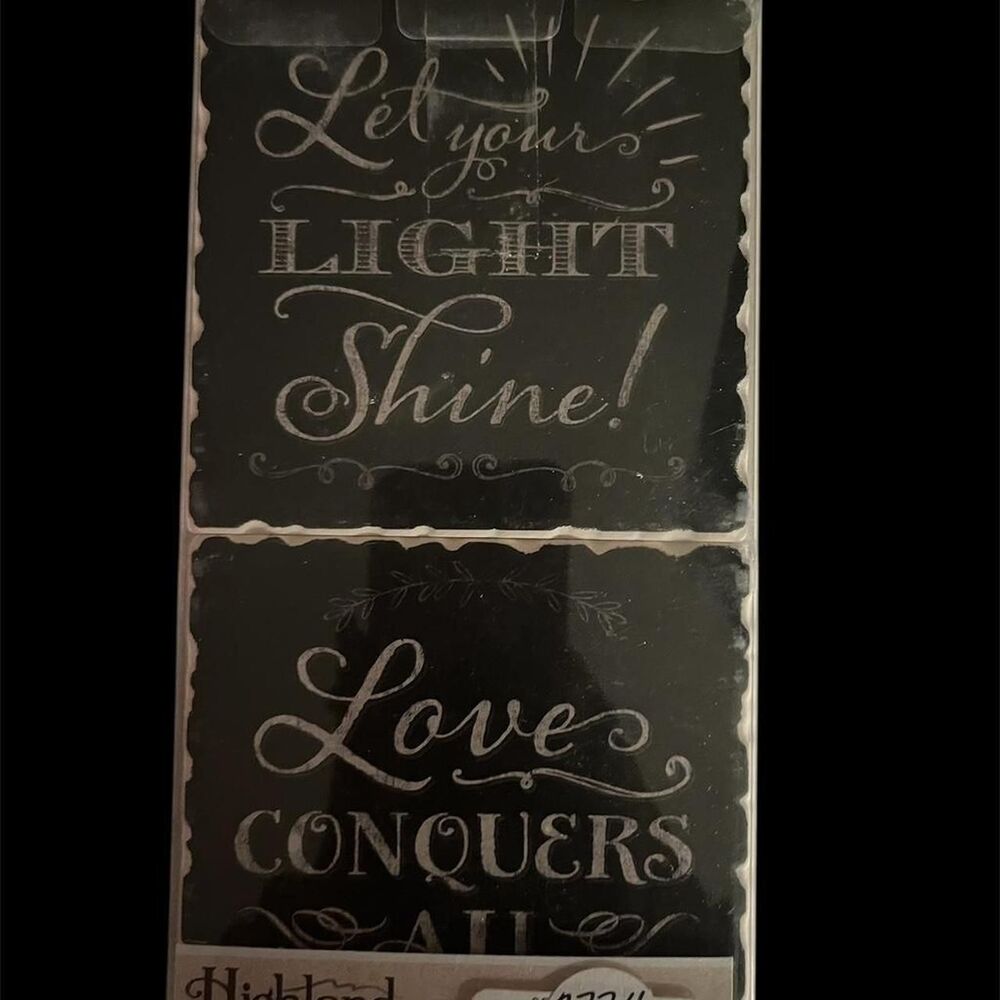 Let your
LIGHT
Shine!
Love
CONQUERS
All
Highland